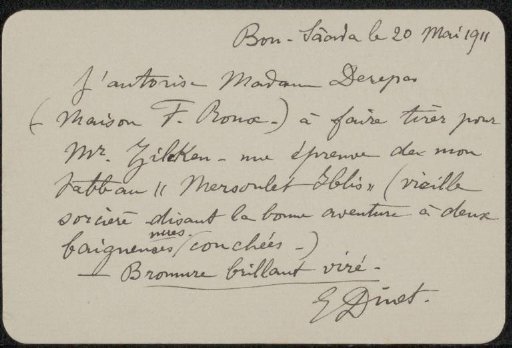 Bou-Sâada le 20 Mai 1911
J'autorise Madame Derepas
(Maison F. Roux-) à faire tirer pour
Mr. Zilcken - une épreuve de mon
tableau "Mersoulet Iblis" (vieille
sorcière disant la bonne aventure à deux
baigneuses nues (couchées -)
- Bromure brillant viré -
E Dinet.